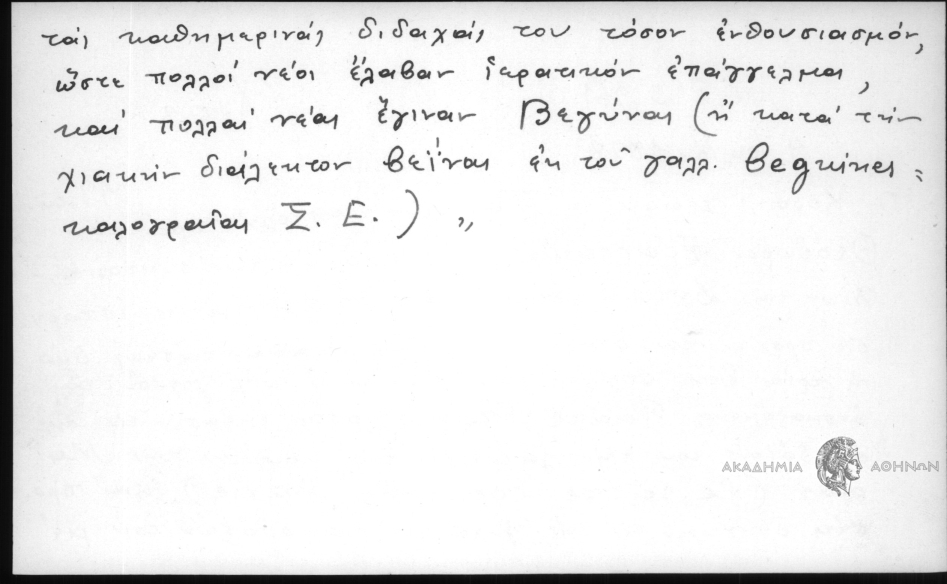 τάς καθημερινάς διδαχάς του τόσον ἐνθουσιασμόν,
ὥστε πολλοί νέοι ἔλαβαν ἱερατικόν ἐπάγγελμα,
καί πολλαί νέαι ἔγιναν Βεγύναι (ἤ κατά τήν
χιακήν διάλεκτον βεΐναι ἐκ τοῦ γαλλ. beguines =
καλογραῖαι Σ. Ε.) "
ΑΚΑΔΗΜΙΑ ΑΘΗΝΩΝ